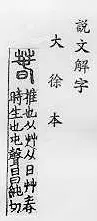 說文解字
大徐本
萅
推也从艸从日艸春
時生也屯聲昌純切